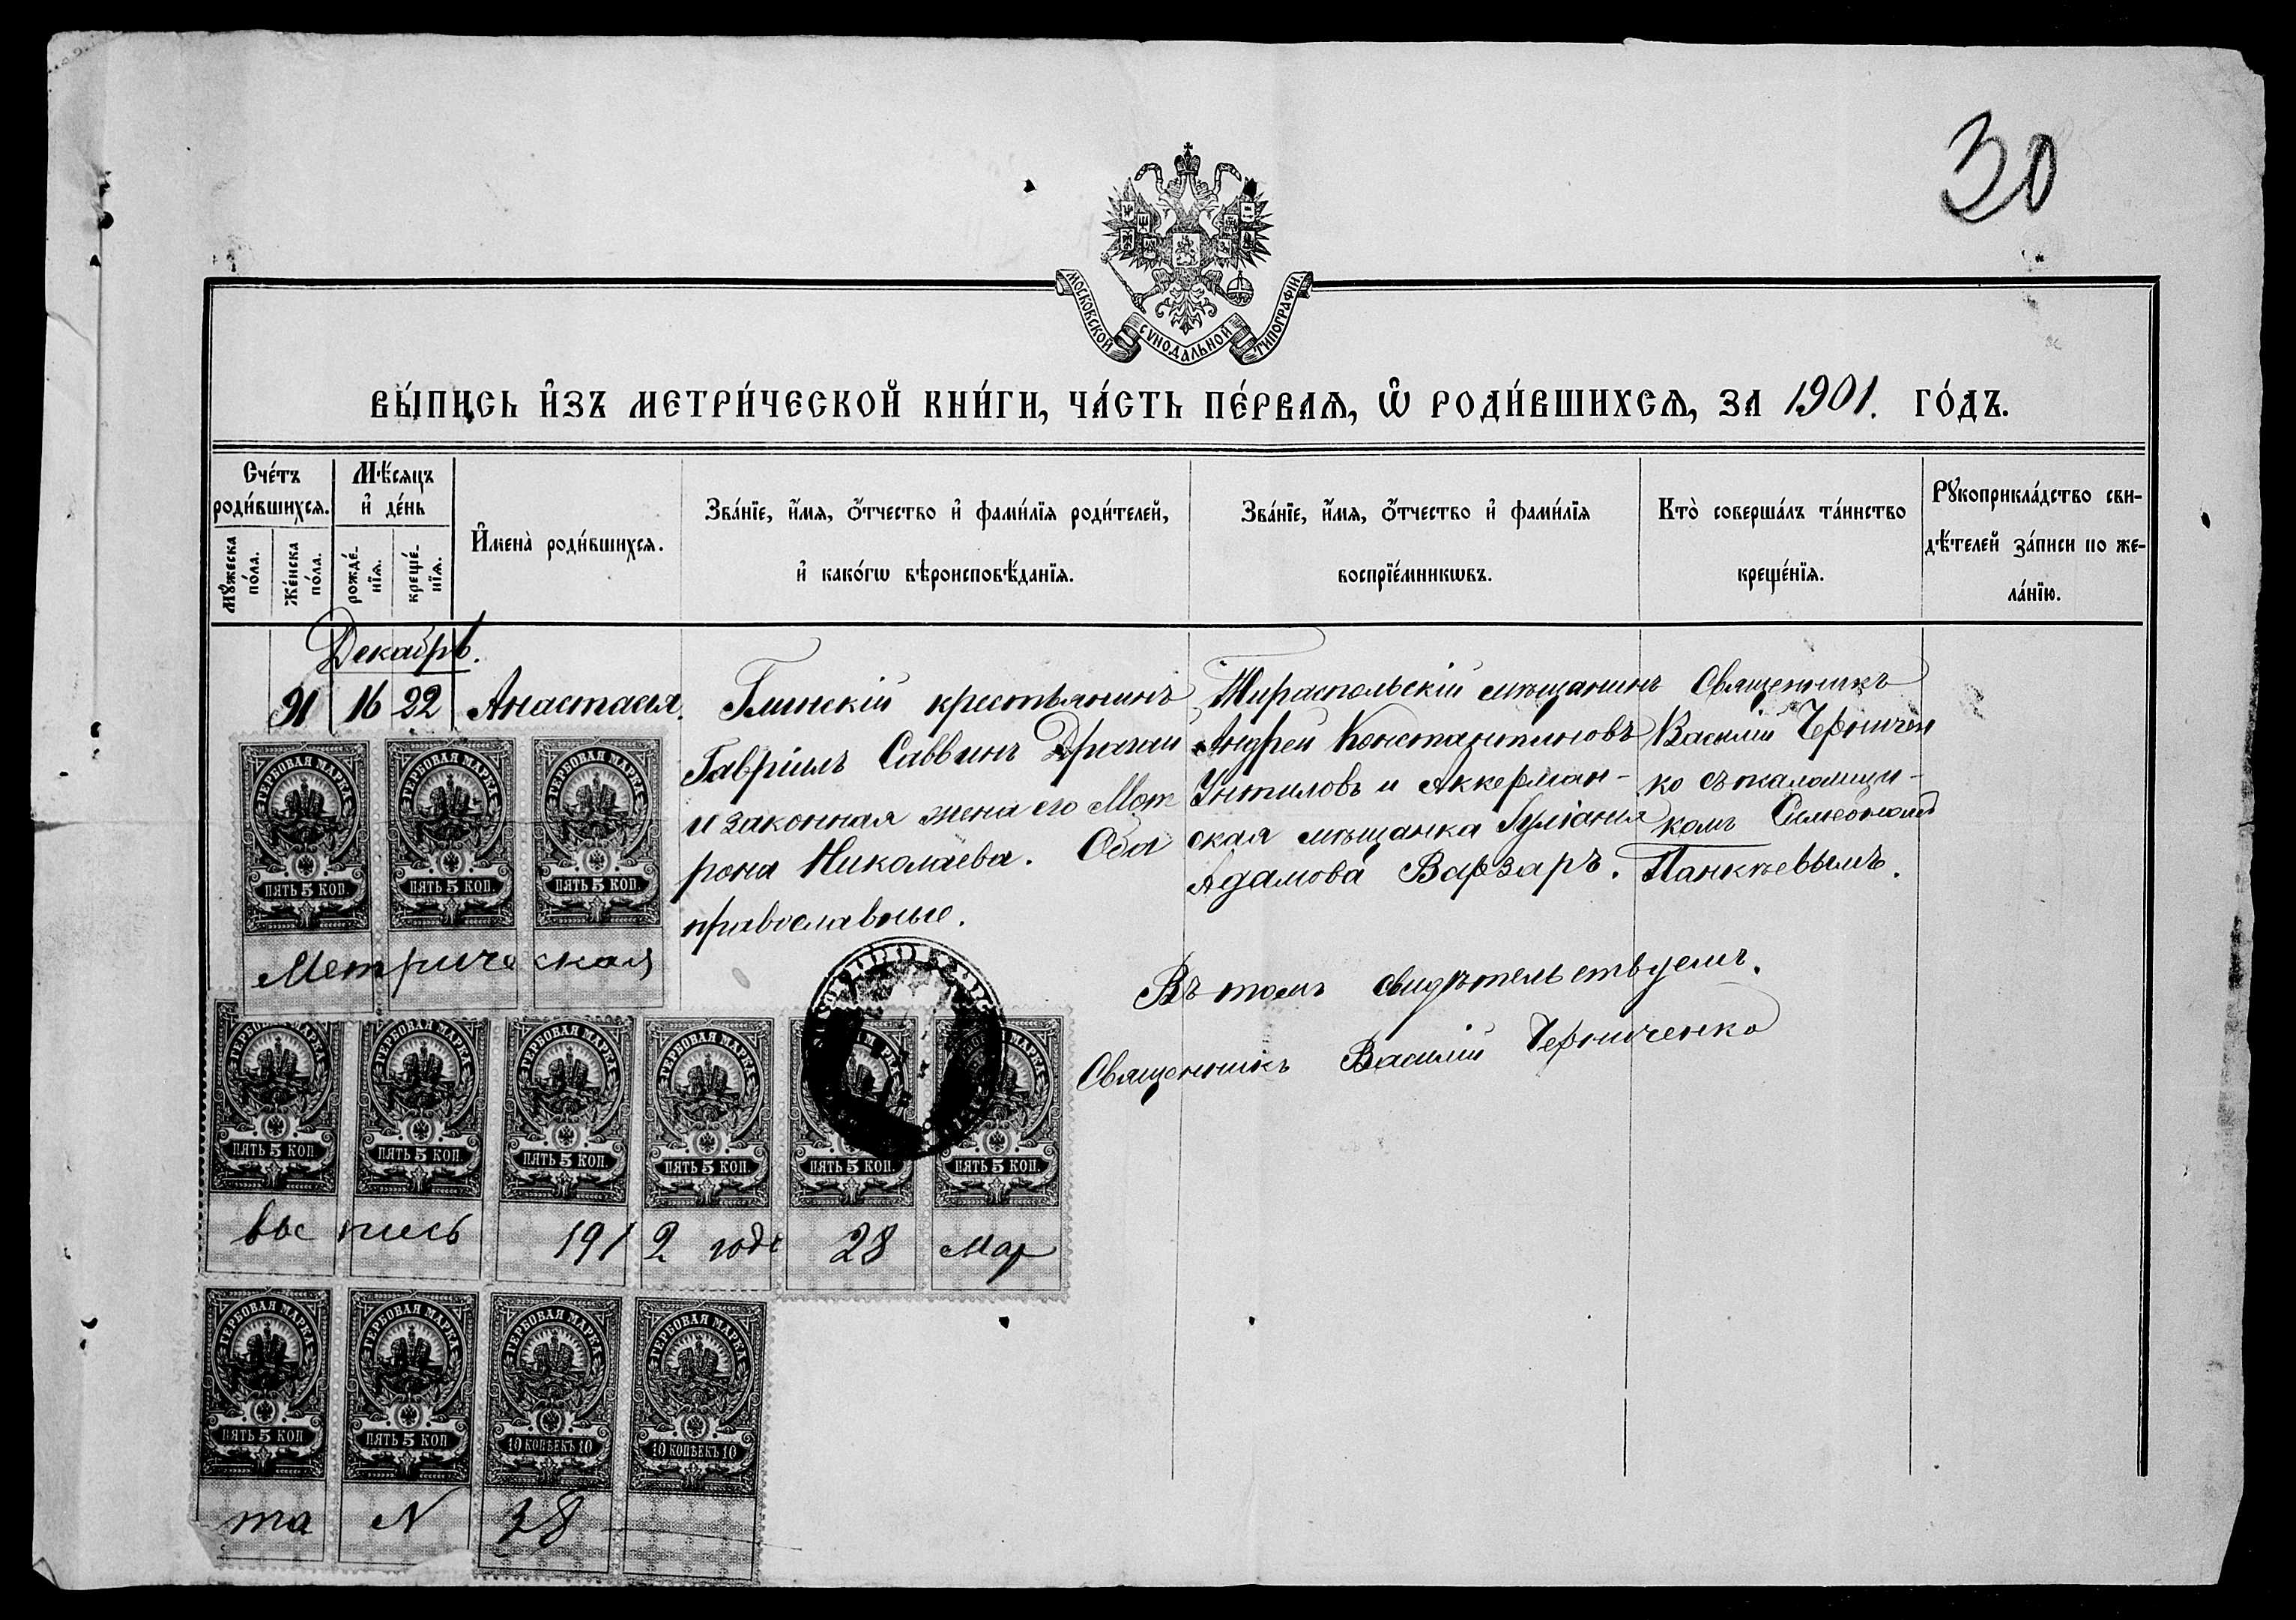 30
МОСКОВСКОЙ СѴНОДАЛЬНОЙ ТИПОГРАФІИ.
ВЫ́ПИСЬ И҆ЗЪ МЕТРИ́ЧЕСКОЙ КНИ́ГИ, ЧА́СТЬ ПЕ́РВАѦ, Ѡ҆ РОДИ́ВШИХСѦ, ЗА 1901. ГО́ДЪ.
Сче́тъ роди́вшихся.
Мꙋжеска по́ла.
Же́нска по́ла.
Мѣ́сяцъ и҆ де́нь
рожде́-нїя.
креще́-нїя.
И҆мена̀ роди́вшихся.
Зва́нїе, и҆́мя, ѻ҆́тчество и҆ фами́лїя роди́телей,
и҆ како́гѡ вѣроисповѣ́данїя.
Зва́нїе, и҆́мя, ѻ҆́тчество и҆ фами́лїя
воспрїе́мникѡвъ.
Кто̀ соверша́лъ та́инство
креще́нїя.
Рꙋкоприкла́дство сви-
дѣ́телей за́писи по же-
ла́нїю.
Декабрь.
91 16 22 Анастасія.
Глинскій крестьянинъ
Гавріилъ Саввинъ Драган
и законная жена его Мот
рона Николаева. Оба
православные.
Тираспольскій мѣщанинъ
Андрей Константиновъ
Унтиловъ и Аккерман-
ская мѣщанка Іуліанія
Адамова Варзаръ.
Священникъ
Василій Черничен
ко съ псаломщи-
комъ Симеономъ
Панкѣевымъ.
Въ томъ свидѣтельствуемъ.
Священникъ Василій Черниченко
ГЕРБОВАЯ МАРКА ГЕРБОВАЯ МАРКА ГЕРБОВАЯ МАРКА
ПЯТЬ 5 КОП. ПЯТЬ 5 КОП. ПЯТЬ 5 КОП.
Метрическая
ГЕРБОВАЯ МАРКА ГЕРБОВАЯ МАРКА ГЕРБОВАЯ МАРКА ГЕРБОВАЯ МАРКА ГЕРБОВАЯ МАРКА ГЕРБОВАЯ МАРКА
ПЯТЬ 5 КОП. ПЯТЬ 5 КОП. ПЯТЬ 5 КОП. ПЯТЬ 5 КОП. ПЯТЬ 5 КОП. ПЯТЬ 5 КОП.
выпись 1912 года 28 Мар
ГЕРБОВАЯ МАРКА ГЕРБОВАЯ МАРКА ГЕРБОВАЯ МАРКА ГЕРБОВАЯ МАРКА
ПЯТЬ 5 КОП ПЯТЬ 5 КОП 10 КОПѢЕКЪ 10 10 КОПѢЕКЪ 10
та N 38